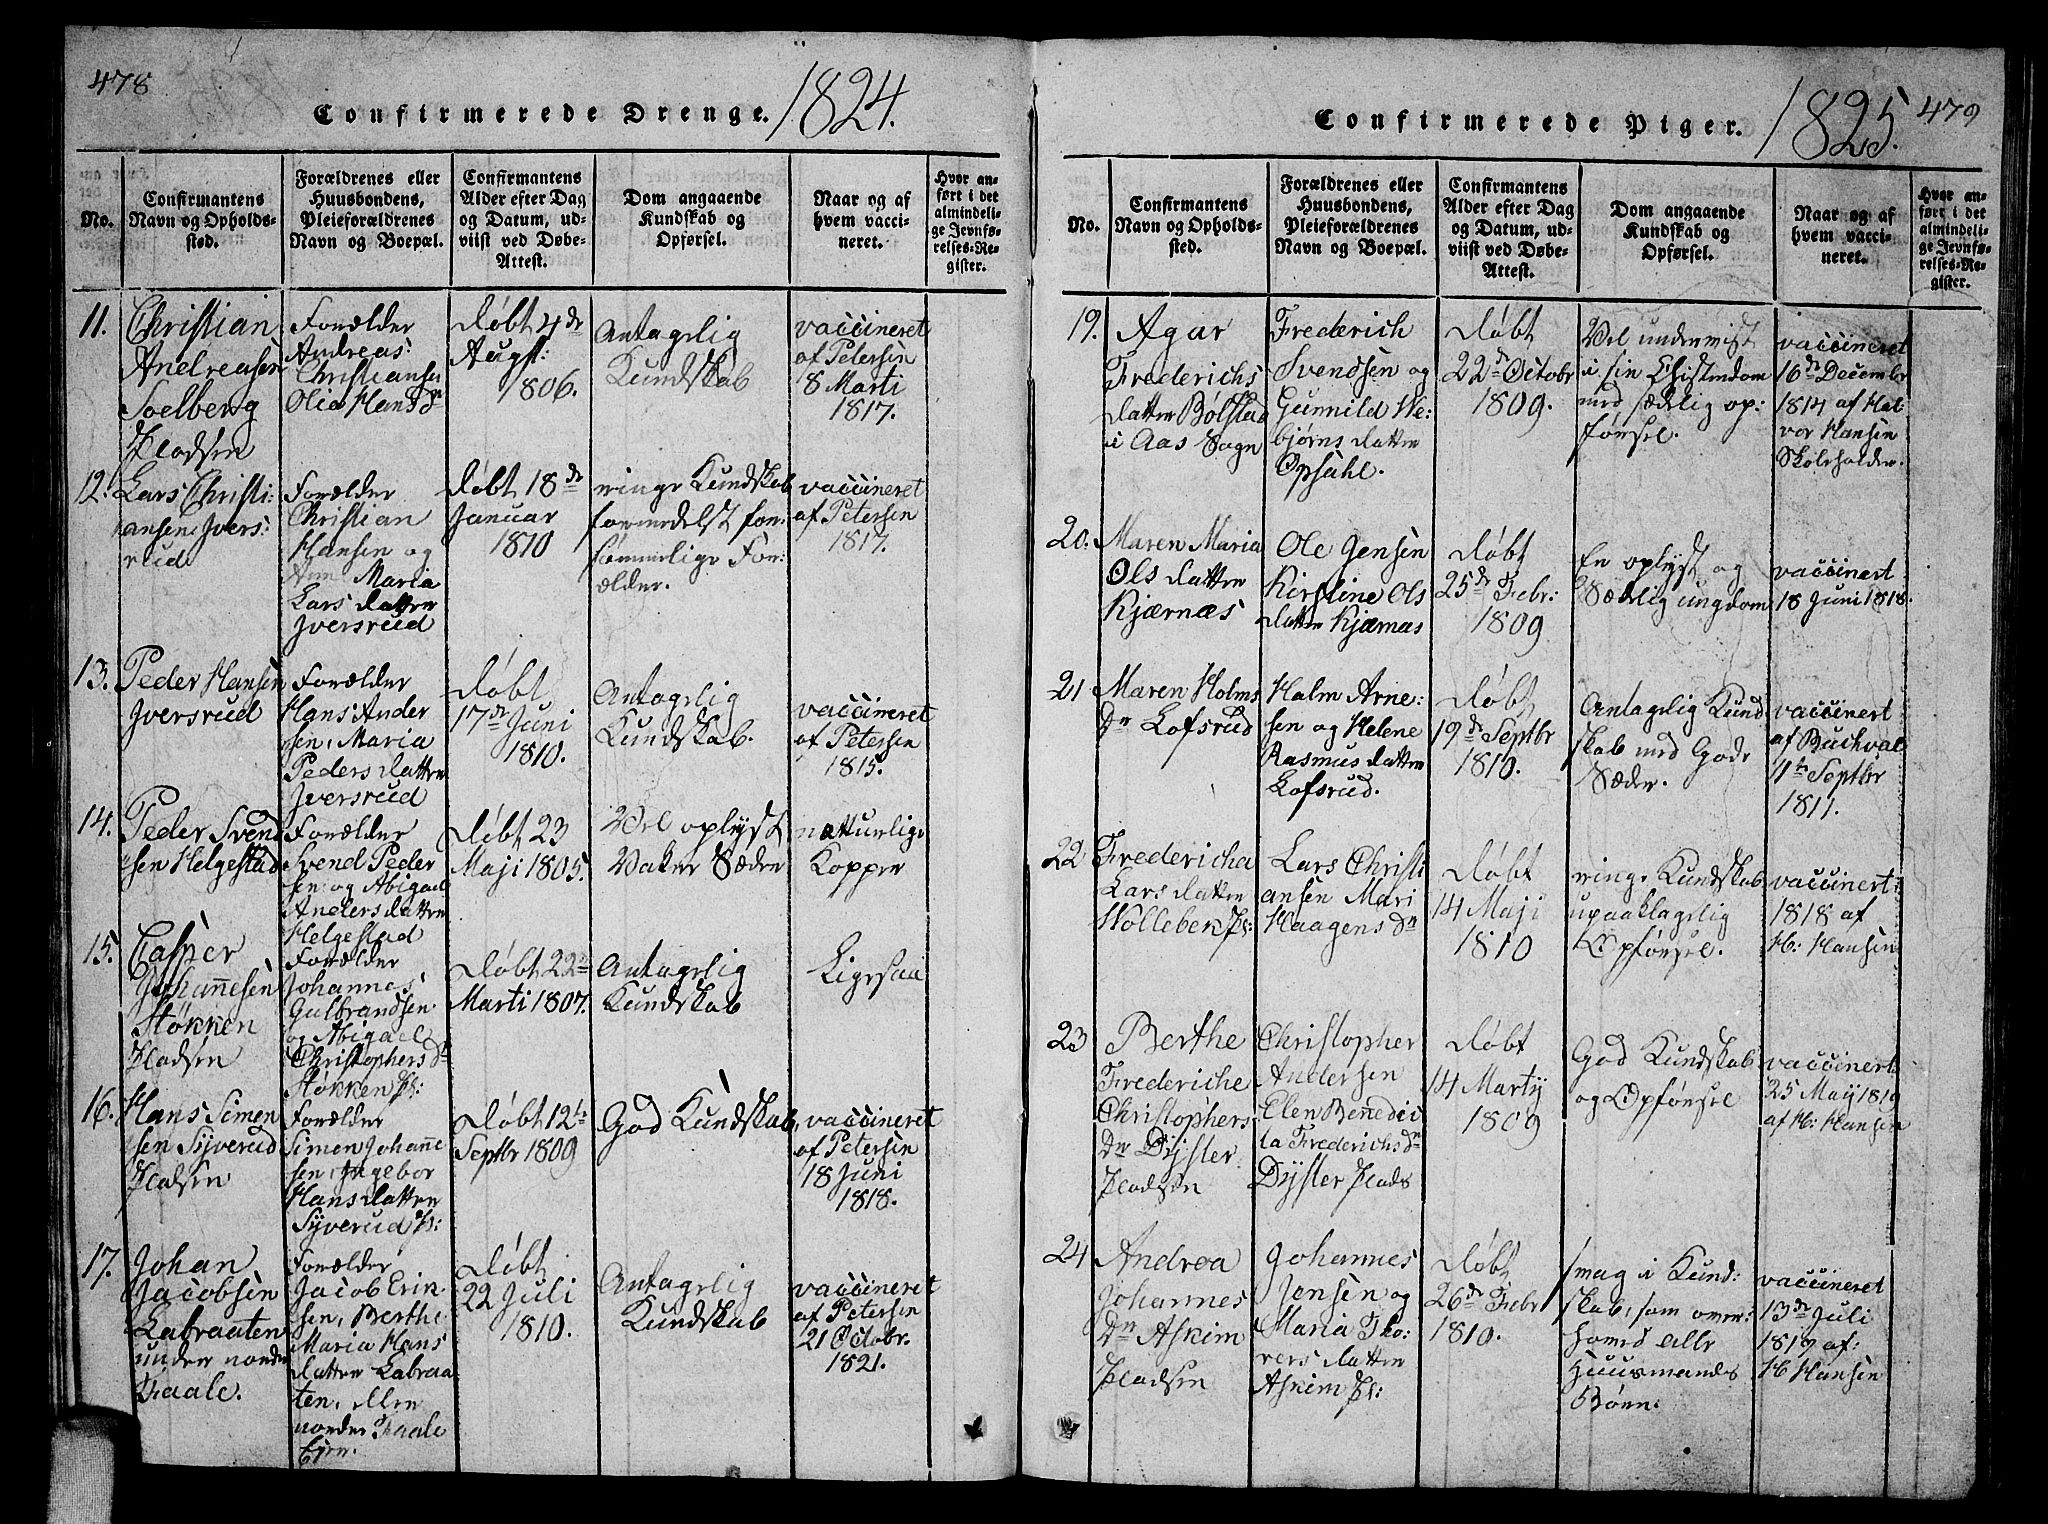 478
Confirmerede Drenge. 1824.
No.
Confirmantens
Navn og Opholds-
sted.
Forældrenes eller
Huusbondens,
Pleieforældrenes
Navn og Boepæl.
Confirmantens
Alder efter Dag
og Datum, ud-
viist ved Døbe-
Attest.
Dom angaaende
Kundskab og
Opførsel.
Naar og af
hvem vacci-
neret.
Hvor an-
ført i det
almindeli-
ge Jevnfø-
relses-Re-
gister.
11.
Christian
Andreasen
Soelberg
Pladsen
Forælder
Andreas:
Christiansen
Olia Hansdr
Døbt 4de
Augst:
1806.
Antagelig
Kundskab
vaccineret
af Petersen
8 Marti
1817.
12.
Lars Christi:
ansen Ivers:
rud
Forælder
Christian
Hansen og
Ane Maria
Lars datter
Iversrud
Døbt 18de
Januar
1810
ringe Kundskab
formedelst for:
sømmelige For:
ælder.
vaccineret
af Petersen
1817.
13.
Peder Hansen
Iversrud
Forælder
Hans Ander
sen, Maria
Peders datter
Iversrud
Døbt
17de Juni
1810.
Antagelig
Kundskab.
vaccineret
af Petersen
1815.
14.
Peder Svend
sen Helgestad
Forælder
Svend Peder
sen og Abigael
Anders datter
Helgestad
Døbt 23
Maji 1805.
Vel oplyst
Vaker Sæder
natturlige
Kopper
15.
Casper
Johannesen
Støkken
Pladsen
Forælder
Johannes
Gulbrandsen
og Abigael
Christophers dr
Støkken Pl:
Døbt 22de
Marti 1807.
Antagelig
Kundskab
Ligesaa
16.
Hans Simen
sen Syverud
Pladsen
Forælder
Simen Johanne
sen, Ingebor
Hans datter
Syverud Pl:
Døbt 12te
Septbr 1809
God Kundskab,
vaccineret
af Petersen
18 Juni
1818.
17.
Johan
Jacobsen
Labraaten
under norder
Faale.
Forælder
Jacob Erik
sen, Berthe
Maria Hans
datter Labraa
ten,
norder Faale
Eier.
Døbt
22 Juli
1810.
Antagelig
Kundskab
vaccineret
af Petersen
21 Octobr.
1821.
479
Confirmerede Piger. 1825.
No.
Confirmantens
Navn og Opholds-
sted.
Forældrenes eller
Huusbondens,
Pleieforældrenes
Navn og Boepæl.
Confirmantens
Alder efter Dag
og Datum, ud-
viist ved Døbe-
Attest.
Dom angaaende
Kundskab og
Opførsel.
Naar og af
hvem vacci-
neret.
Hvor an-
ført i det
almindeli-
ge Jevnfø-
relses-Re-
gister.
19.
Agar
Frederichs
datter Bølstad
i Aas Sogn
Frederich
Svendsen og
Gunnild We:
bjørns datter
Opsahl.
Døbt
22de Octobr
1809.
Vel underviist
i sin Christendom
med sædelig op:
førsel.
vaccineret
16de Decembr
1814 af Hal
vor Hansen
Skoleholder.
20.
Maren Maria
Ols datter
Kjærnæs
Ole Jensen
Kirstine Ols
datter Kjærnæs
Døbt
25de Febr:
1809
En oplyst og
Sædelig ungdom
vaccinert
18 Juni 1818.
21
Maren Holms
Dr Lofsrud
Halm Arne:
sen og Helene
Rasmus datter
Lofsrud.
Døbt
19de Septbr
1810.
Antagelig Kund
skab med Gode
Sæder.
vaccinert
af Buchval
11te Septbr
1811.
22
Fredericha
Lars datter
Hollebek Pl:
Lars Christi
ansen Mari
Haagens dr
Døbt
14 Maji
1810
ringe Kundskab
upaaklagelig
Opførsel.
vaccinert
1818 af
H: Hansen
23
Berthe
Frederiche
Christophers
Dr Dyster
Pladsen
Christopher
Andersen
Elen Benedic
ta Frederichs dr
Dyster Plads
Døbt
14 Marty
1809
God Kundskab
og Opførsel
vaccinert
25 Maij 1819
af H: Hansen
24
Andrea
Johannes
Dr Askim
Pladsen
Johannes
Jensen og
Maria Tho:
rers datter
Askim Pl:
Døbt
26de Febr
1810.
smag i Kund:
skab, som over:
hoved alle
Huusmands
Børn.
vaccineret
13de Juli
1819 af:
H Hansen